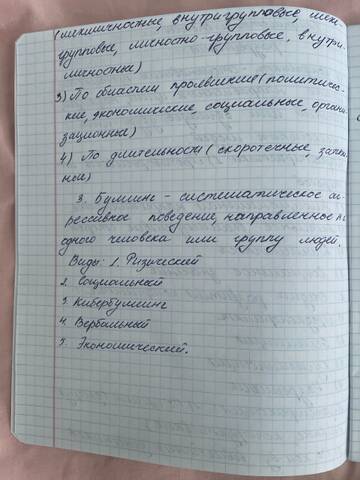 (межличностные, внутригрупповые, меж-
групповые, личностно-групповые, внутри
личностные)
3) По области проявления (политичес-
кие, экономические, социальные, органи
зационные)
4) По длительности (скоротечные, затяж
ные)
3. Буллинг - систематическое аг-
рессивное поведение, направленное на
одного человека или группу людей.
Виды: 1. Физический
2. Социальный
3. Кибербуллинг
4. Вербальный
5. Экономический.